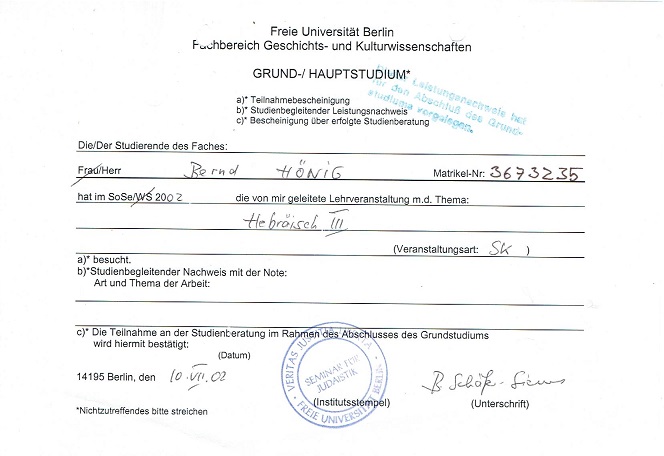 Freie Universität Berlin
Fachbereich Geschichts- und Kulturwissenschaften
GRUND-/ HAUPTSTUDIUM*
Dieser Leistungsnachweis hat
für den Abschluß des Grund-
studiums vorgelegen.
a)* Teilnahmebescheinigung
b)* Studienbegleitender Leistungsnachweis
c)* Bescheinigung über erfolgte Studienberatung
Die/Der Studierende des Faches:
Frau/Herr Bernd HÖNIG Matrikel-Nr: 3673235
hat im SoSe/WS 2002 die von mir geleitete Lehrveranstaltung m.d. Thema:
Hebräisch III
(Veranstaltungsart: SK )
a)* besucht.
b)*Studienbegleitender Nachweis mit der Note:
Art und Thema der Arbeit:
c)* Die Teilnahme an der Studienberatung im Rahmen des Abschlusses des Grundstudiums
wird hiermit bestätigt:
(Datum)
14195 Berlin, den 10.VII.02
VERITAS JUSTITIA
SEMINAR FÜR
JUDAISTIK
FREIE UNIVERSITÄT BERLIN
(Institutsstempel)
(Unterschrift)
*Nichtzutreffendes bitte streichen